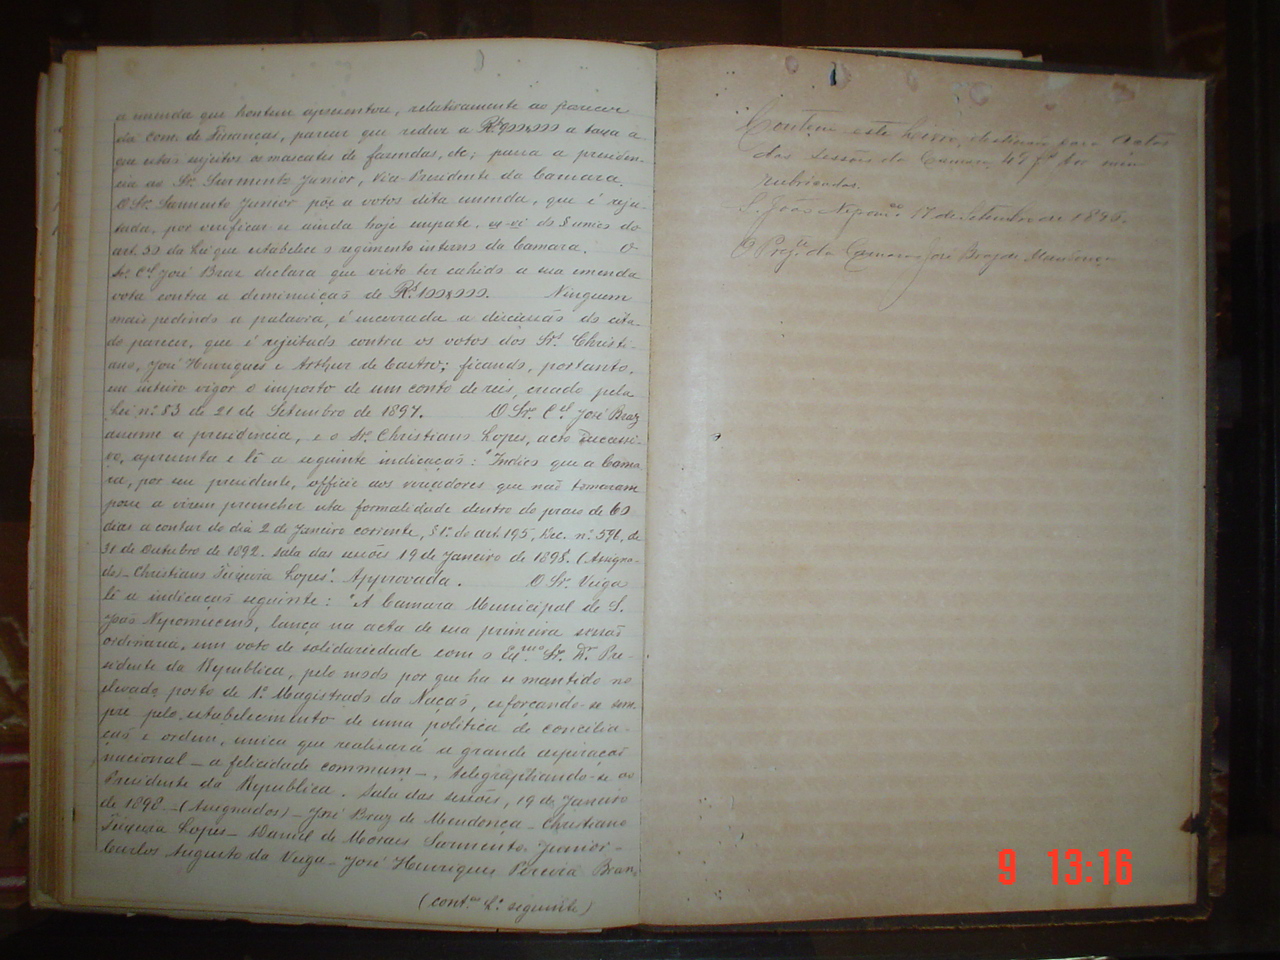 a emenda que hontem apresentou, relativamente ao parecer
da com. de Finanças, parecer que reduz a Rs 900$000 a taxa a
que estão sujeitos os mascates de fazendas, etc; passa a presiden-
cia ao Sr. Sarmento Junior, Vice-Presidente da Camara.
O Sr. Sarmento Junior põe a votos dita emenda, que é rejei-
tada, por verificar-se ainda hoje empate, ex-vi do § unico do
art. 50 da Lei que estabelece o regimento interno da Camara. O
Sr. Cel. José Braz declara que visto ter cahido a sua emenda
vota contra a deminuição de Rs 100$000. Ninguem
mais pedindo a palavra, é encerrada a discussão do cita-
do parecer, que é rejeitado contra os votos dos Srs. Christi-
ano, José Henriques e Arthur de Castro; ficando, portanto,
em inteiro vigor o imposto de um conto de reis, creado pela
Lei nº 53 de 21 de Setembro de 1897. O Sr. Cel. José Braz
assume a presidencia, e o Sr. Christiano Lopes, acto sucessi-
vo, apresenta e lê a seguinte indicação: "Indico que a Cama-
ra, por seu presidente, officie aos vereadores que não tomaram
posse a virem preencher esta formalidade dentro do praso de 60
dias a contar do dia 2 de Janeiro corrente, § 1º do art. 195, Dec. nº 596, de
31 de Outubro de 1892. Sala das sessões 19 de Janeiro de 1898. (Assigna-
do) - Christiano Teixeira Lopes". Approvada. O Sr. Veiga
lê a indicação seguinte: "A Camara Municipal de S.
João Nepomuceno, lança na acta de sua primeira sessão
ordinaria, um voto de solidariedade com o Exmo. Sr. Dr. Pre-
sidente da Republica, pelo modo por que ha se mantido no
elevado posto de 1º Magistrado da Nação, esforçando-se sem-
pre pelo estabelecimento de uma politica de concilia-
ção e ordem, unica que realisará a grande aspiração
nacional - a felicidade commum -, telegraphando-se ao
Presidente da Republica. Sala das sessões, 19 de Janeiro
de 1898 - (Assignados) - José Braz de Mendonça - Christiano
Teixeira Lopes - Daniel de Moraes Sarmento Junior -
Carlos Augusto da Veiga - José Henriques Pereira Bran-
(cont. Lº seguinte)
Contem este livro, destinado para actas
das sessões da Camara, 49 fs por mim
rubricadas.
S. João Nepomº 17 de Setembro de 1896.
O Presjte da Camara José Braz de Mendonça
9 13:16